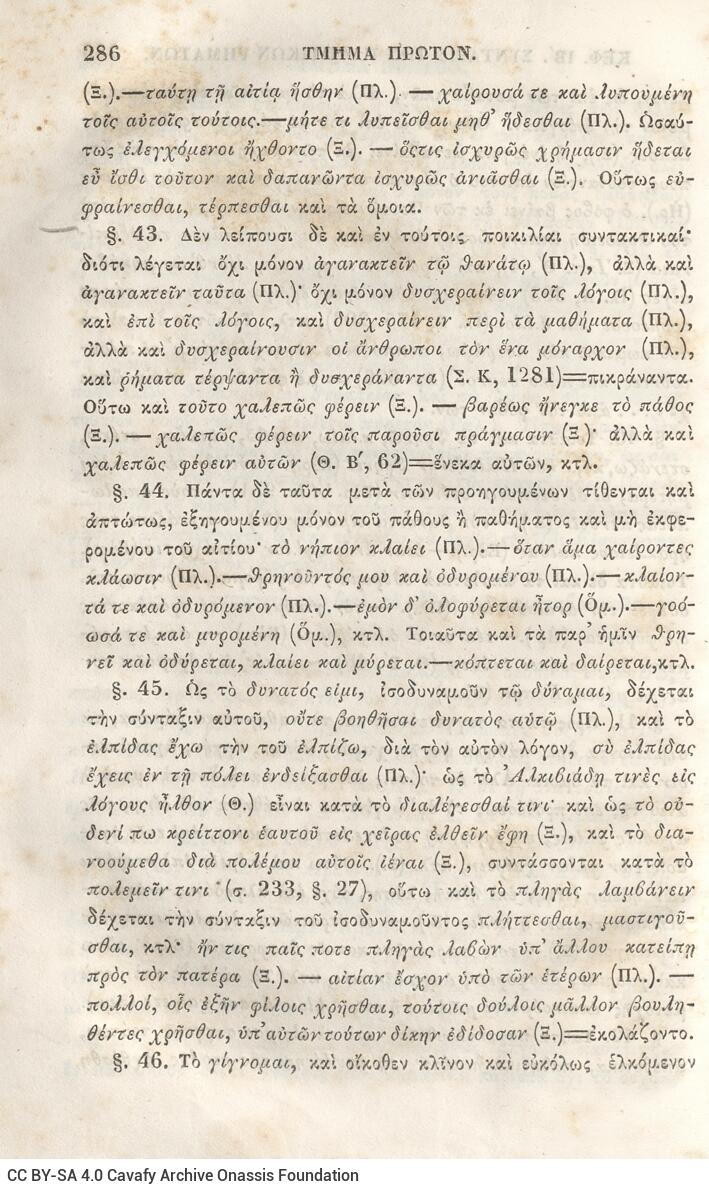 286 ΤΜΗΜΑ ΠΡΩΤΟΝ.
(Ξ.).—ταύτῃ τῇ αἰτίᾳ ἥσθην (Πλ.). — χαίρουσά τε καὶ λυπουμένη
τοῖς αὐτοῖς τούτοις.—μήτε τι λυπεῖσθαι μηθ’ ἥδεσθαι (Πλ.). Ὡσαύ-
τως ἐλεγχόμενοι ἤχθοντο (Ξ.). — ὅςτις ἰσχυρῶς χρήμασιν ἥδεται
εὖ ἴσθι τοῦτον καὶ δαπανῶντα ἰσχυρῶς ἀνιᾶσθαι (Ξ.). Οὕτως εὐ-
φραίνεσθαι, τέρπεσθαι καὶ τὰ ὅμοια.
§. 43. Δὲν λείπουσι δὲ καὶ ἐν τούτοις ποικιλίαι συντακτικαί·
διότι λέγεται ὄχι μόνον ἀγανακτεῖν τῷ θανάτῳ (Πλ.), ἀλλὰ καὶ
ἀγανακτεῖν ταῦτα (Πλ.)· ὄχι μόνον δυσχεραίνειν τοῖς λόγοις (Πλ.),
καὶ ἐπὶ τοῖς λόγοις, καὶ δυσχεραίνειν περὶ τὰ μαθήματα (Πλ.),
ἀλλὰ καὶ δυσχεραίνουσιν οἱ ἄνθρωποι τὸν ἕνα μόναρχον (Πλ.),
καὶ ῥήματα τέρψαντα ἢ δυσχεράναντα (Σ. Κ, 1281)=πικράναντα.
Οὕτω καὶ τοῦτο χαλεπῶς φέρειν (Ξ.). — βαρέως ἤνεγκε τὸ πάθος
(Ξ.). — χαλεπῶς φέρειν τοῖς παροῦσι πράγμασιν (Ξ.)· ἀλλὰ καὶ
χαλεπῶς φέρειν αὐτῶν (Θ. Β′, 62)=ἕνεκα αὐτῶν, κτλ.
§. 44. Πάντα δὲ ταῦτα μετὰ τῶν προηγουμένων τίθενται καὶ
ἀπτώτως, ἐξηγουμένου μόνον τοῦ πάθους ἢ παθήματος καὶ μὴ ἐκφε-
ρομένου τοῦ αἰτίου· τὸ νήπιον κλαίει (Πλ.).—ὅταν ἅμα χαίροντες
κλάωσιν (Πλ.).—θρηνοῦντός μου καὶ ὀδυρομένου (Πλ.).—κλαίον-
τά τε καὶ ὀδυρόμενον (Πλ.).—ἐμὸν δ’ ὀλοφύρεται ἦτορ (Ὅμ.).—γοό-
ωσά τε καὶ μυρομένη (Ὅμ.), κτλ. Τοιαῦτα καὶ τὰ παρ’ ἡμῖν θρη-
νεῖ καὶ ὀδύρεται, κλαίει καὶ μύρεται.—κόπτεται καὶ δαίρεται,κτλ.
§. 45. Ὡς τὸ δυνατός εἰμι, ἰσοδυναμοῦν τῷ δύναμαι, δέχεται
τὴν σύνταξιν αὐτοῦ, οὔτε βοηθῆσαι δυνατὸς αὑτῷ (Πλ.), καὶ τὸ
ἐλπίδας ἔχω τὴν τοῦ ἐλπίζω, διὰ τὸν αὐτὸν λόγον, σὺ ἐλπίδας
ἔχεις ἐν τῇ πόλει ἐνδείξασθαι (Πλ.)· ὡς τὸ Ἀλκιβιάδῃ τινὲς εἰς
λόγους ἦλθον (Θ.) εἶναι κατὰ τὸ διαλέγεσθαί τινι· καὶ ὡς τὸ οὐ-
δενί πω κρείττονι ἑαυτοῦ εἰς χεῖρας ἐλθεῖν ἔφη (Ξ.), καὶ τὸ δια-
νοούμεθα διὰ πολέμου αὐτοῖς ἰέναι (Ξ.), συντάσσονται κατὰ τὸ
πολεμεῖν τινι (σ. 233, §. 27), οὕτω καὶ τὸ πληγὰς λαμβάνειν
δέχεται τὴν σύνταξιν τοῦ ἰσοδυναμοῦντος πλήττεσθαι, μαστιγοῦ-
σθαι, κτλ· ἤν τις παῖς ποτε πληγὰς λαβὼν ὑπ’ ἄλλου κατείπῃ
πρὸς τὸν πατέρα (Ξ.). — αἰτίαν ἔσχον ὑπὸ τῶν ἑτέρων (Πλ.). —
πολλοί, οἷς ἐξῆν φίλοις χρῆσθαι, τούτοις δούλοις μᾶλλον βουλη-
θέντες χρῆσθαι, ὑπ’ αὐτῶν τούτων δίκην ἐδίδοσαν (Ξ.)=ἐκολάζοντο.
§. 46. Τὸ γίγνομαι, καὶ οἴκοθεν κλῖνον καὶ εὐκόλως ἑλκόμενον
CC BY-SA 4.0 Cavafy Archive Onassis Foundation